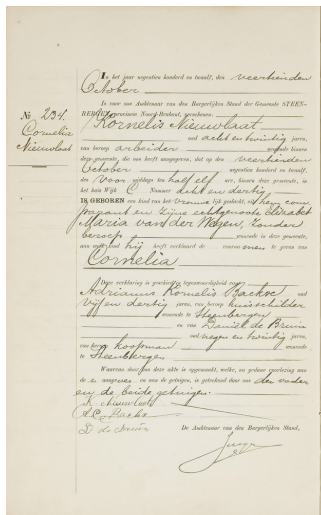 No 234.
Cornelia
Nieuwlaat
In het jaar negentien honderd en twaalf, den veertienden
October
is voor ons Ambtenaar van den Burgerlijken Stand der Gemeente STEEN-
BERGEN, provincie Noord-Brabant, verschenen:
Kornelis Nieuwlaat
oud acht en twintig jaren,
van beroep arbeider wonende binnen
deze gemeente, die ons heeft aangegeven, dat op den veertienden
October negentien honderd en twaalf,
des voor middags ten half elf ure, binnen deze gemeente, in
het huis Wijk C Nummer acht en dertig
IS GEBOREN een kind van het vrouwelijk geslacht, uit hem com
parant en zijne echtgenoote Elizabet
Maria van der Wegen, zonder
beroep wonende in deze gemeente,
aan welk kind hij heeft verklaard de voornamen te geven van
Cornelia
Deze verklaring is geschied in tegenwoordigheid van
Adrianus Kornelis Backx oud
vijf en dertig jaren, van beroep huisschilder
wonende te Steenbergen
en van Daniël de Bruin
oud negen en twintig jaren,
van beroep koopman wonende
te Steenbergen
Waarvan door ons deze akte is opgemaakt, welke, na gedane voorlezing aan
de aangever en aan de getuigen, is geteekend door ons den vader
en de beide getuigen.
K Nieuwlaat
A. C. Backx
D. de Bruin
De Ambtenaar van den Burgerlijken Stand,